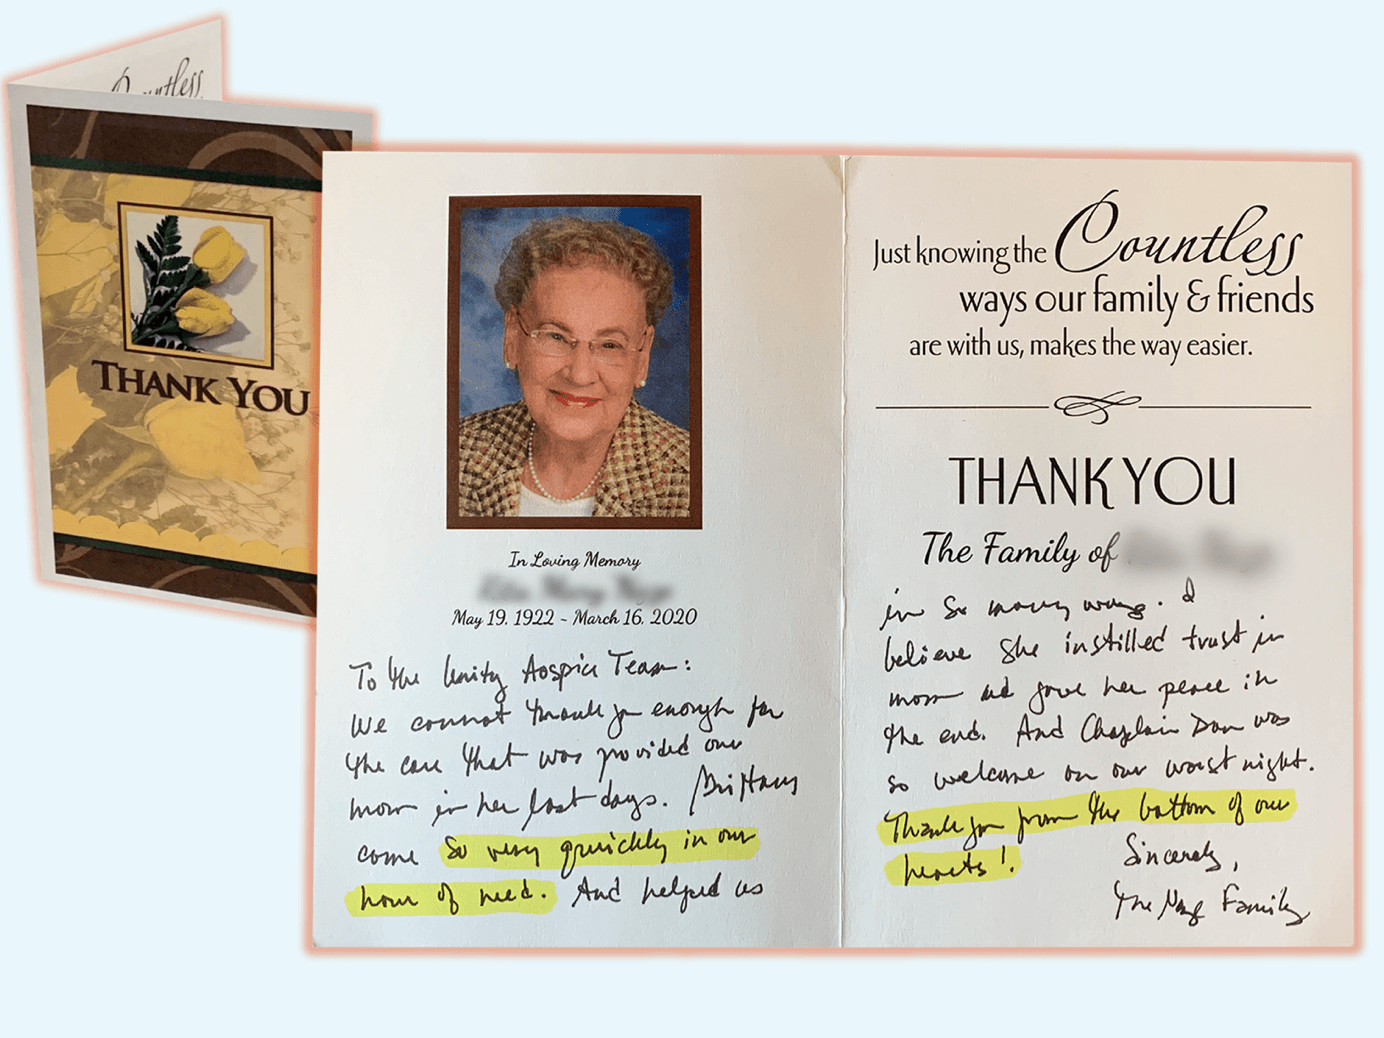 Countless
THANK YOU
In Loving Memory
May 19, 1922 - March 16, 2020
To the Unity Hospice Team:
We cannot thank you enough for
the care that was provided our
mom in her last days. Brittany
came so very quickly in our
hour of need. And helped us
Just knowing the Countless
ways our family & friends
are with us, makes the way easier.
THANK YOU
The Family of
in so many ways. I
believe she instilled trust in
mom and gave her peace in
the end. And Chaplain Dan was
so welcome on our worst night.
Thank you from the bottom of our
hearts!
Sincerely,
The Family